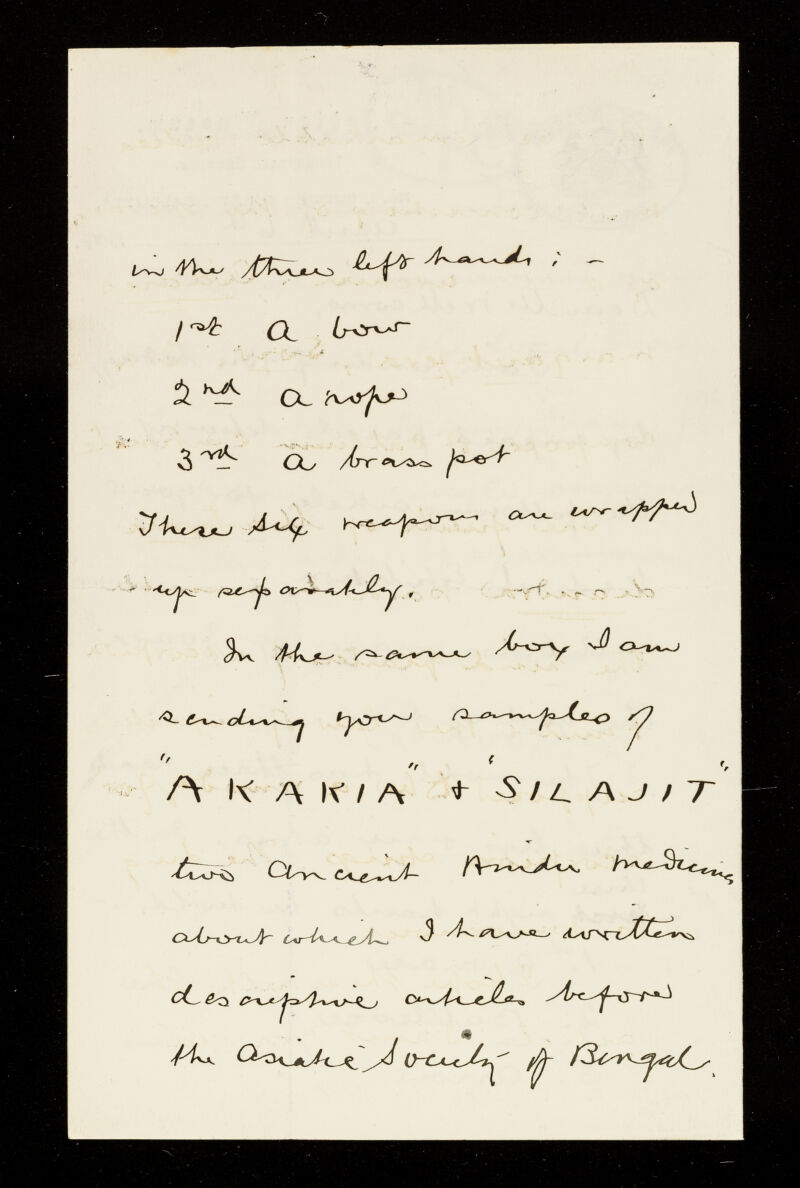 in the three left hands : -
1st A bow
2nd A rope
3rd A brass pot
These six weapons are wrapped
up separately.
In the same box I am
sending you samples of
"AKAKIA" & "SILAJIT"
two ancient Hindu medicines
about which I have written
descriptive articles before
the Asiatic Society of Bengal.